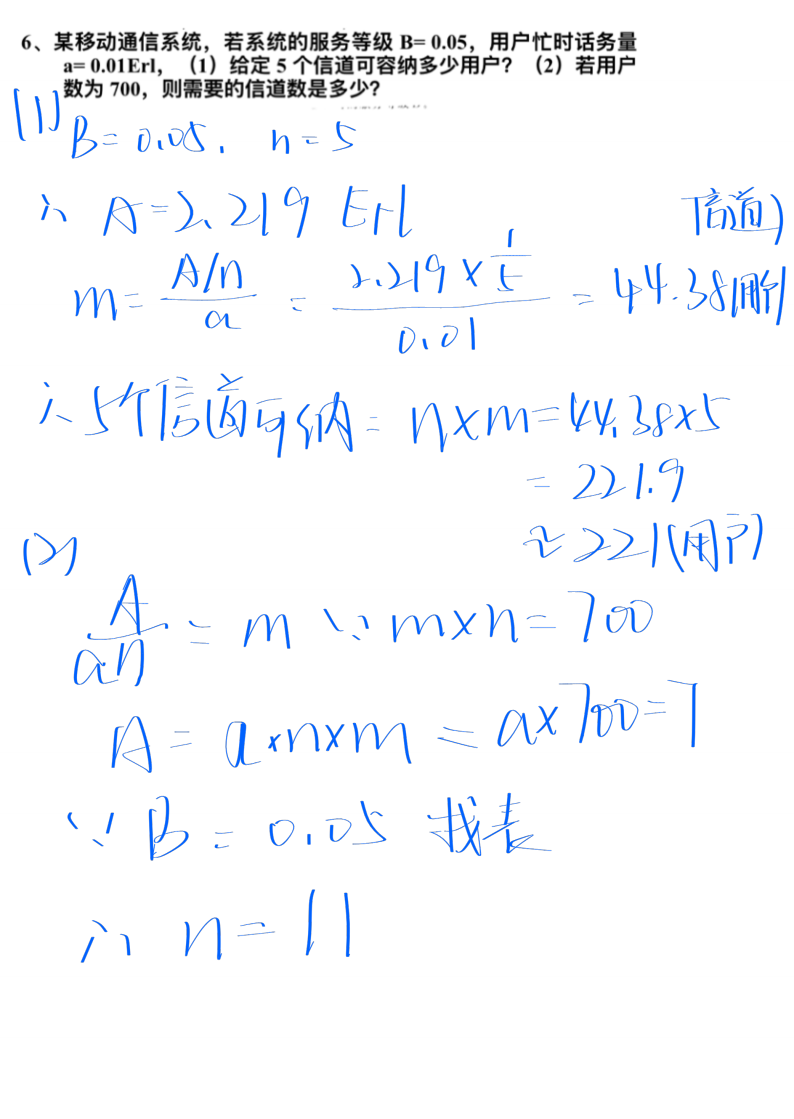 6、某移动通信系统，若系统的服务等级 B= 0.05，用户忙时话务量
a= 0.01Erl，（1）给定 5 个信道可容纳多少用户？（2）若用户
数为 700，则需要的信道数是多少？
(1)
B = 0.05, n = 5
∴ A = 2.219 Erl
m = (A/n)/a = (2.219 × 1/5)/0.01 = 44.38(用户/信道)
∴ 5个信道可纳 = n×m = 44.38×5
= 221.9
≈ 221(用户)
(2)
A/(an) = m ∵ m×n = 700
A = a×n×m = a×700 = 7
∵ B = 0.05 找表
∴ n = 11